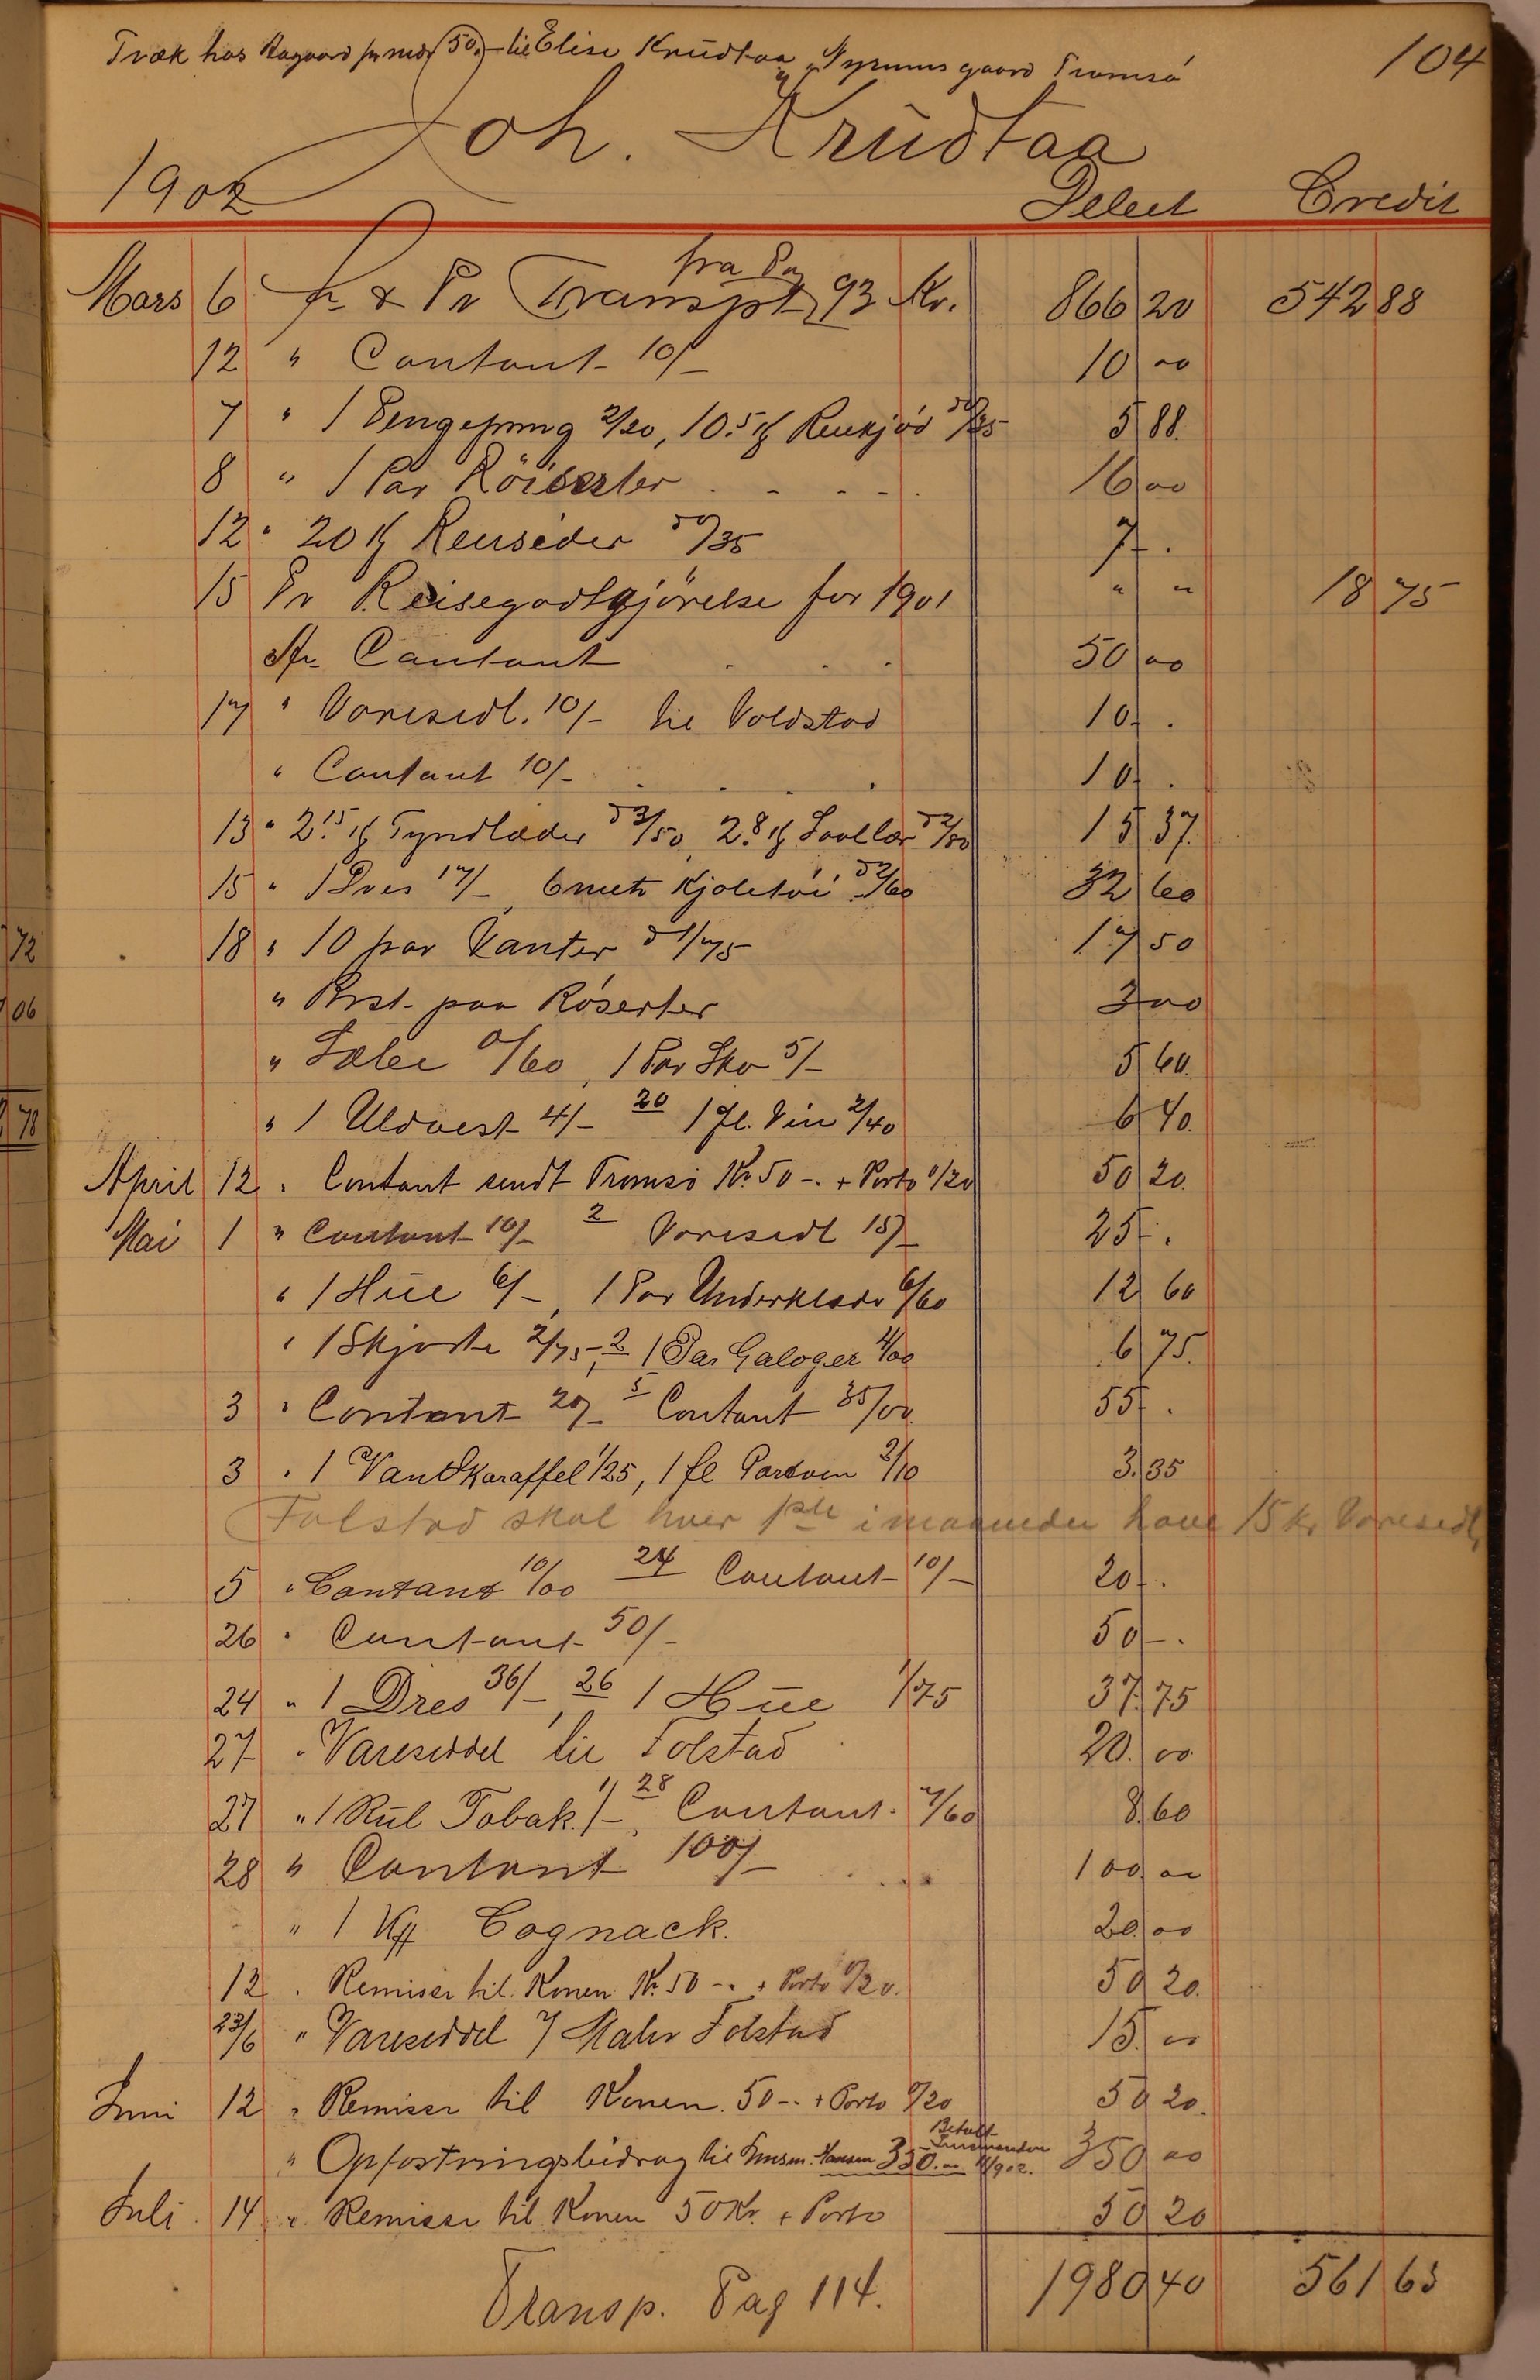 104
Træk hos Aagaard pr md 50,- til Elise Krüdtaa, Nyrunns gaard Tromsø
Joh. Krüdtaa
1902 Debet Credit
Mars 6 An & Pr Transpt fra Pag 93 Kr. 866 20 542 88
12 " Contant 10/- 10 00
7 " 1 Pengepung 2/20, 10.5 kg Renkjød /35 5 88.
8 " 1 Par Röisester . - - - . 16 00
12 " 20 kg Rensider /35 7- .
15 Pr Reisegodtgjörelse for 1901 " " 18 75
An Contant . . . 50 00
17 " Varesedl. 10/- til Voldstad 10- .
" Contant 10/- . . . . 10- .
13 " 2.15 kg Tyndlæder à 3/50, 2.8 kg Saallær à 2/80 15 37.
15 " 1 Dres 17/-, 6 metr Kjoletöi à 2/60 32 60
18 " 10 par Vanter à 1/75 17 50
" Rest paa Röserter 3 00
" 0/60, 1 Par Sko 5/- 5 60.
" 1 Uldvest 4/- 20 1 fl. Vin 2/40 6 40.
April 12 " Contant sendt Tromsö Kr. 50 -. + Porto 0/20 50 20.
Mai 1 " Contant 10/- 2 Varesedl 15/- 25- .
" 1 Hüe 6/-, 1 Par Underklæder 6/60 12 60
" 1 Skjorte 2/75-, 2 1 Par Galoger 4/00 6 75.
3 " Contant 20/- 5 Contant 35/00. 55- .
3 " 1 Vandkaraffel 1/25, 1 fl Portvin 2/10 3.35
Folstad skal hver 1ste i maaneden have 15 kr Varesedl,
5 " Contant 10/00 24 Contant 10/- 20- .
26 " Contant 50/- 50 -.
24 " 1 Dres 36/-, 26 1 Hüe 1/75 37.75
27 " Vareseddel til Folstad 20. 00.
27 " 1 Rul Tobak 1/-, 28 Contant. 7/60 8.60
28 " Contant 100/- . . . . 100 00
" 1 Kg Cognack. 20. 00
12 " Remisse til Konen Kr. 50 -. + Porto 0/20. 50 20.
23/6 " Vareseddel Folstad 15. 00
Juni 12 " Remisse til Konen. 50 -. + Porto 0/20 50 20.
" Opfostringsbidrag til Hansen 350.00 Betalt 350 00
Juli 14 " Remisse til Konen 50 Kr. + Porto 50 20
Transp. Pag 114. 1980 40 561 63
72
06
78